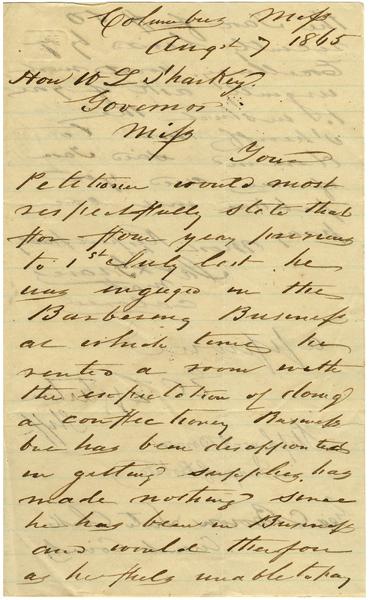 Columbus Miss
Augst 7 1865
Hon W L Sharkey.
Governor
Miss
Your
Petitioner would most
respectfully state that
for four years previous
to 1st July last he
was engaged in the
Barbering Business
at which time he
rented a room with
the expectation of doing
a confectionery Business
but has been disappointed
in getting supplies has
made nothing since
he has been in Business
and would therefore
as he feels unable to pay